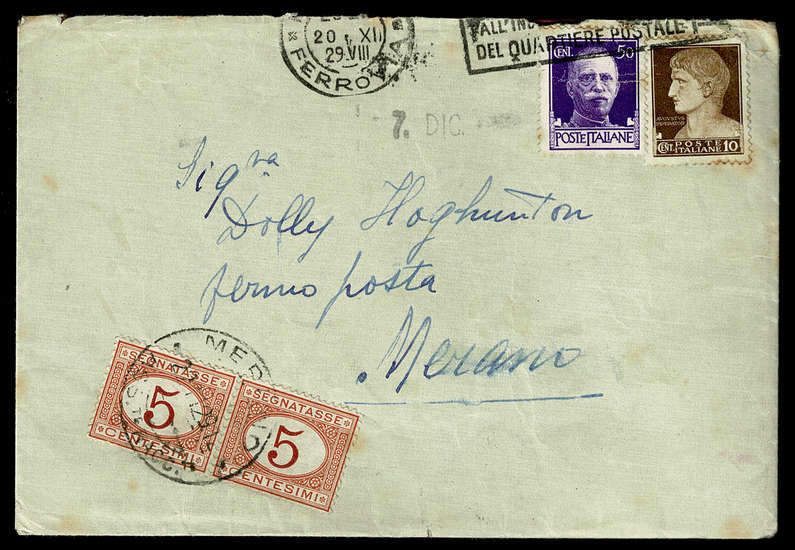 20 XI
29.VIII
FERROVIA
ALL'IND
DEL QUARTIERE POSTALE
CENT. 50
POSTE ITALIANE
AVGVSTVS
CENT. POSTE ITALIANE 10
7. DIC.
Sigra
Dolly Hoghunton
fermo posta
Merano
SEGNATASSE
5
CENTESIMI
SEGNATASSE
5
CENTESIMI